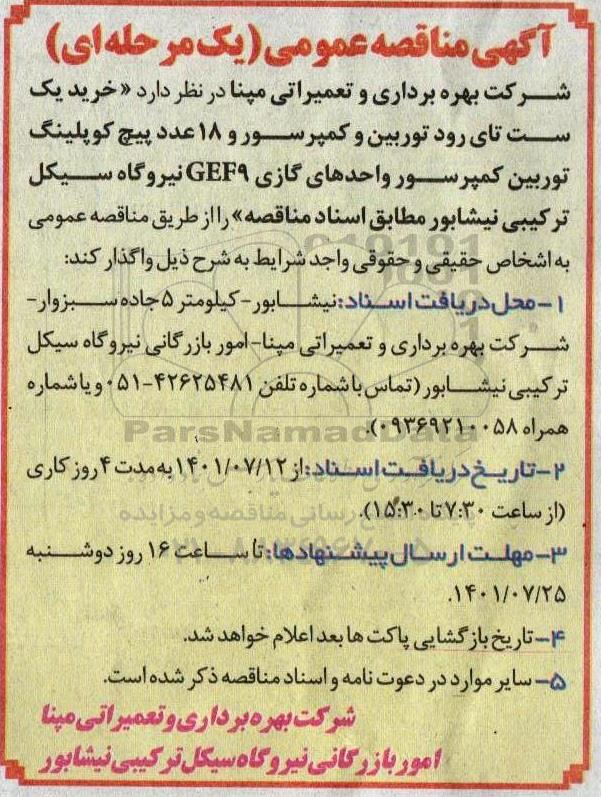 آگهی مناقصه عمومی (یک مرحله ای)
شرکت بهره برداری و تعمیراتی مپنا در نظر دارد «خرید یک
ست تای رود توربین و کمپرسور و ۱۸ عدد پیچ کوپلینگ
توربین کمپرسور واحدهای گازی GEF۹ نیروگاه سیکل
ترکیبی نیشابور مطابق اسناد مناقصه» را از طریق مناقصه عمومی
به اشخاص حقیقی و حقوقی واجد شرایط به شرح ذیل واگذار کند:
۱- محل دریافت اسناد: نیشابور- کیلومتر ۵ جاده سبزوار-
شرکت بهره برداری و تعمیراتی مپنا- امور بازرگانی نیروگاه سیکل
ترکیبی نیشابور (تماس با شماره تلفن ۴۲۶۲۵۴۸۱-۰۵۱ و یا شماره
همراه ۰۹۳۶۹۲۱۰۰۵۸).
ParsNamadData
۲- تاریخ دریافت اسناد: از ۱۴۰۱/۰۷/۱۲ به مدت ۴ روز کاری
(از ساعت ۷:۳۰ تا ۱۵:۳۰).
۳- مهلت ارسال پیشنهادها: تا ساعت ۱۶ روز دوشنبه
۱۴۰۱/۰۷/۲۵.
۴- تاریخ بازگشایی پاکت ها بعد اعلام خواهد شد.
۵- سایر موارد در دعوت نامه و اسناد مناقصه ذکر شده است.
شرکت بهره برداری و تعمیراتی مپنا
امور بازرگانی نیروگاه سیکل ترکیبی نیشابور